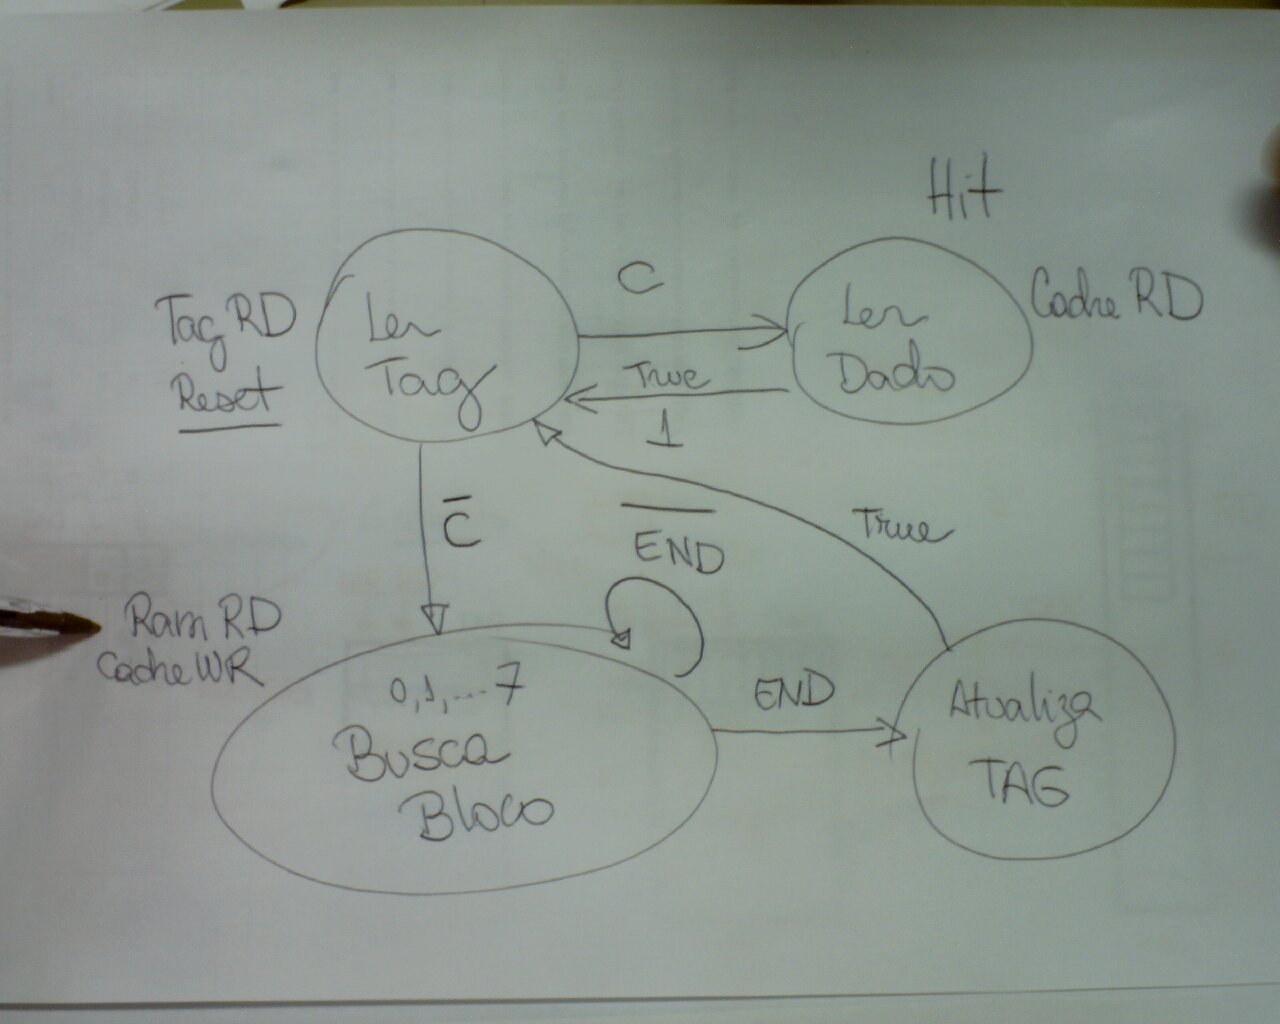 Hit
C
Tag RD
Reset
Ler
Tag
Ler
Dado
Cache RD
True
1
C̅
E̅N̅D̅
True
Ram RD
Cache WR
0,1,....7
Busca
Bloco
END
Atualiza
TAG